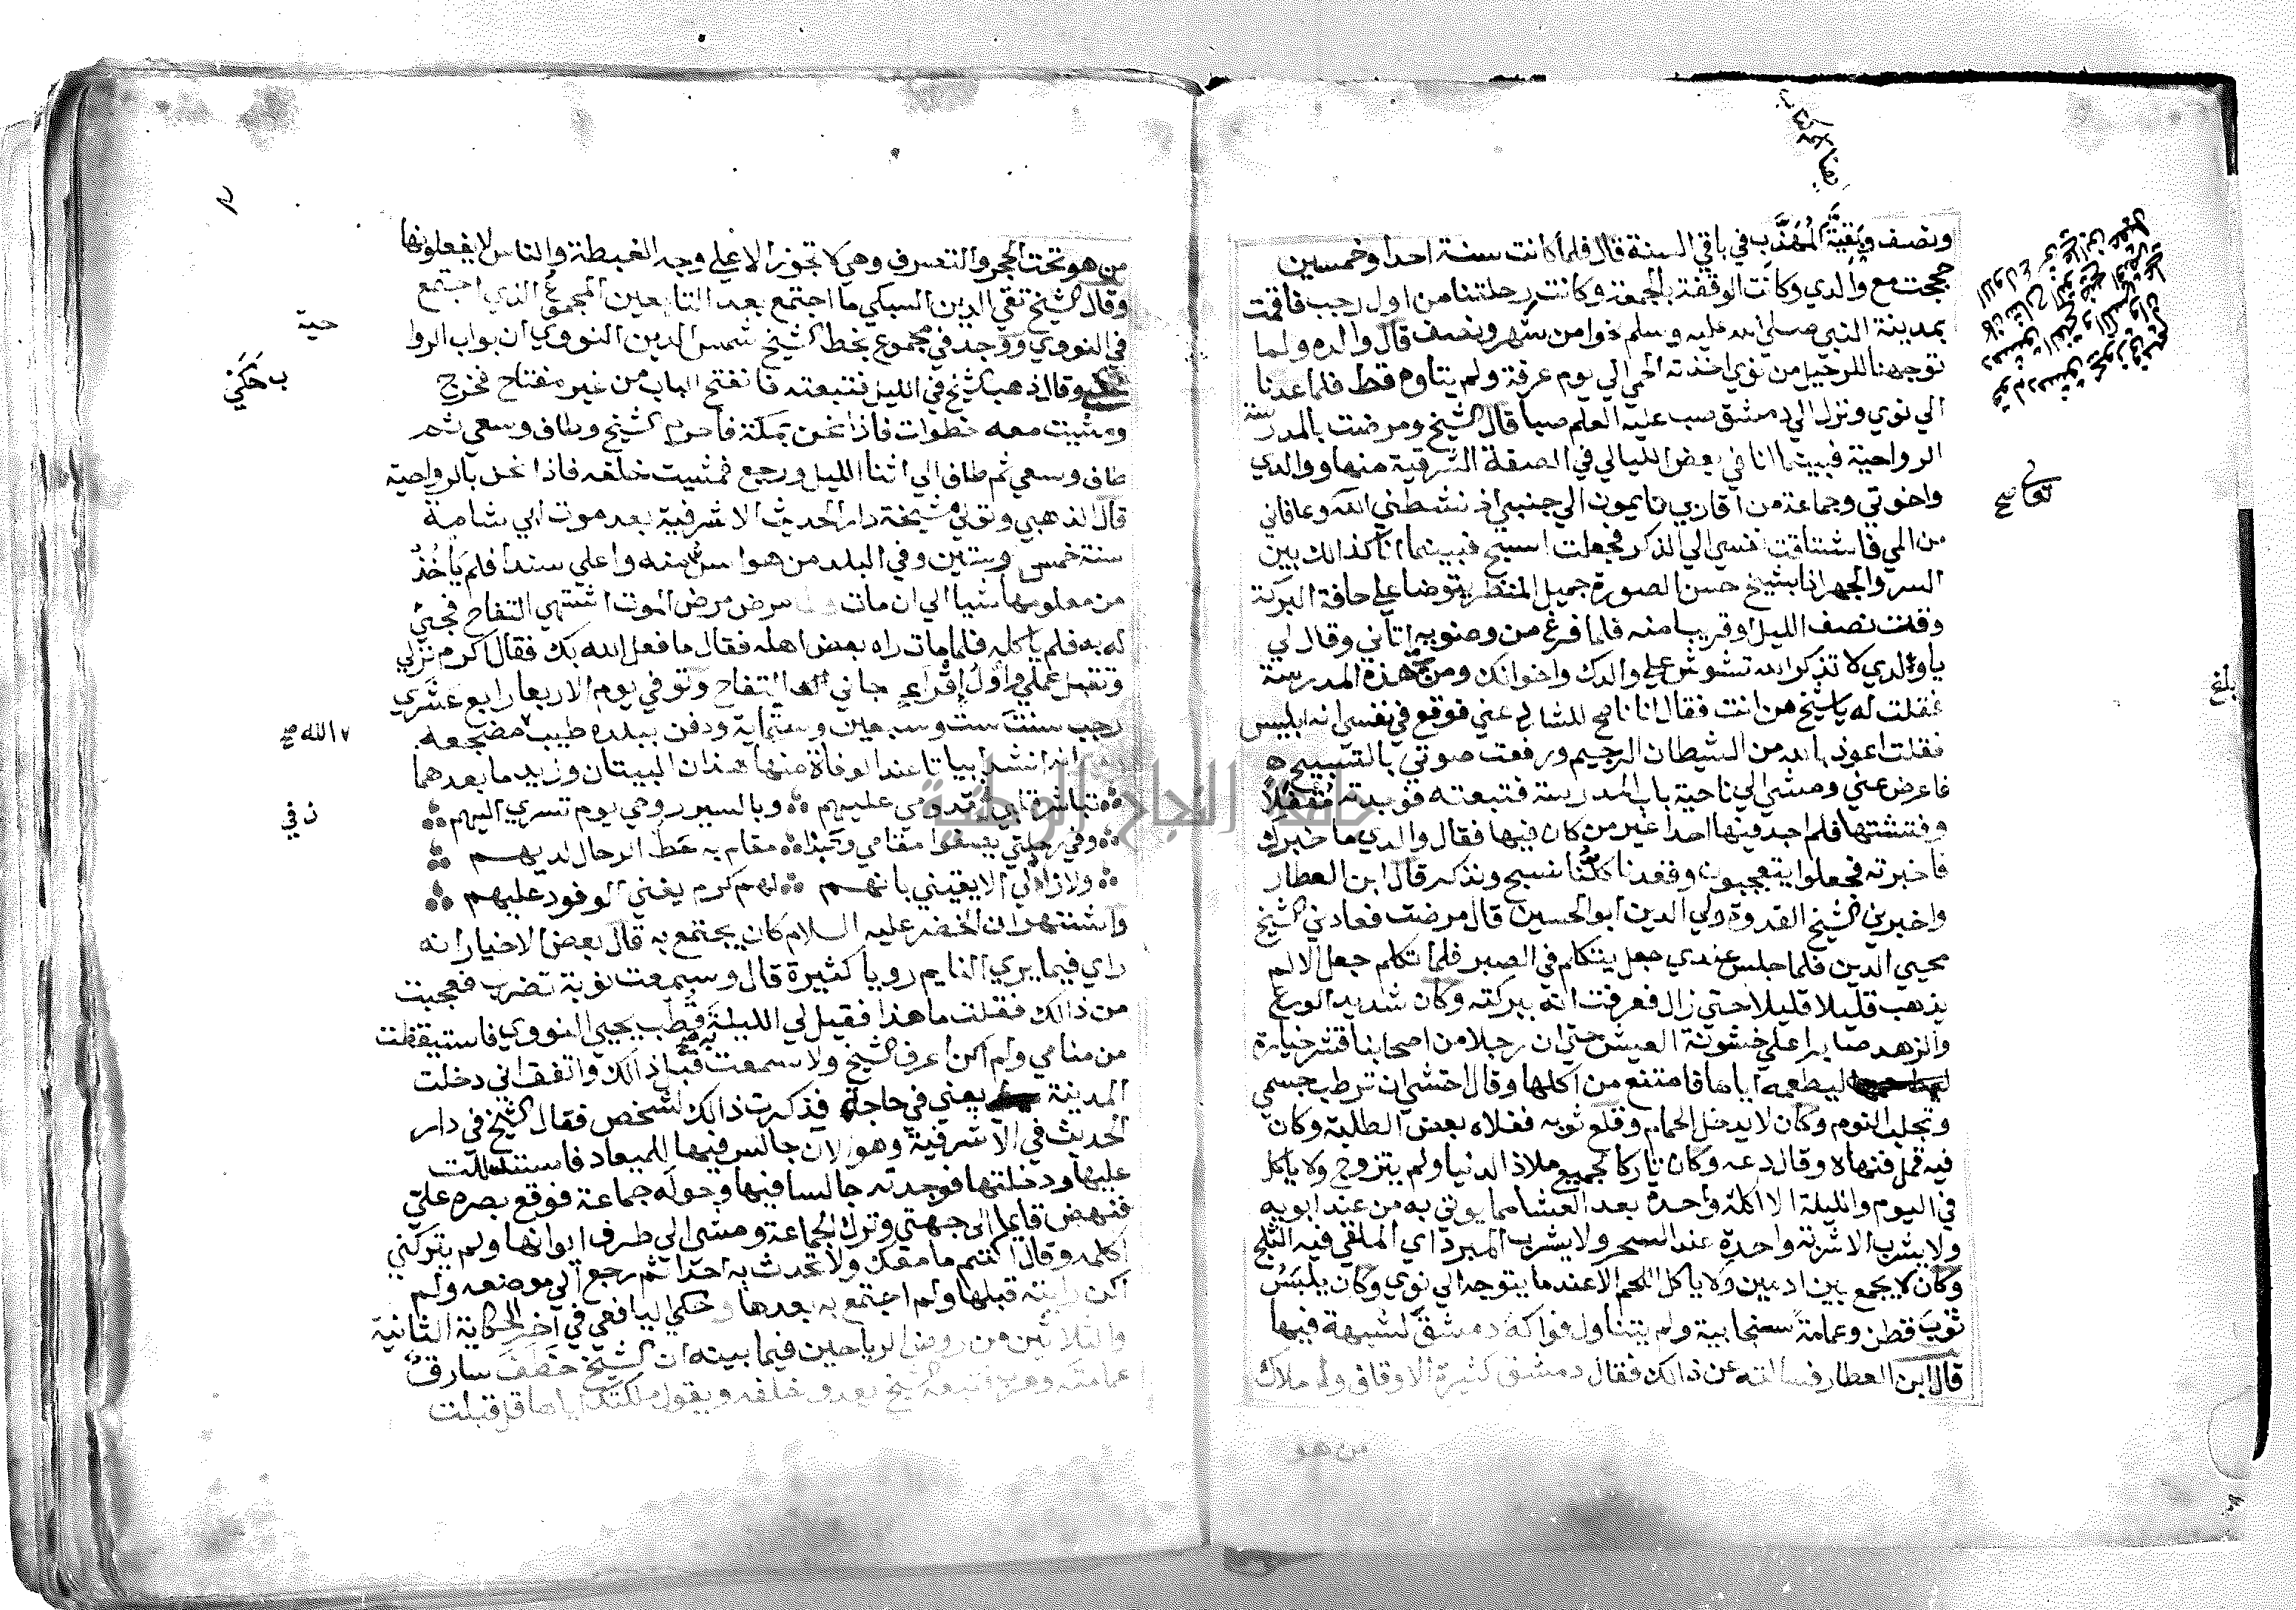 ونصف وبقية المهذب في باقي السنة قال فلما كانت سنة احدا وخمسين
حججت مع والدي وكانت الوقفة بالجمعة وكانت رحلتنا من اول رجب فاقمت
بمدينة النبي صلى الله عليه وسلم نحوا من شهر ونصف قال والده ولما
توجهنا للرحيل من نوي اخذته الحمي الي يوم عرفة ولم يتاوه قط فلما عدنا
الي نوي ونزل الي دمشق صب عليه العلم صبا قال الشيخ ومرضت بالمدرسة
الرواحية فبينما انا في بعض الليالي في الصفة الشرقية منها ووالدي
واخوتي وجماعة من اقاربي نايمون الي جنبي اذ نشطني الله وعافاني
من المي فاشتاقت نفسي الي الذكر فجعلت اسبح فبينما انا كذالك بين
السر والجهر اذا بشيخ حسن الصورة جميل المنظر يتوضا علي حافة البركة
وقت نصف الليل او قريبا منه فلما فرغ من وضويه اتاني وقال لي
ياولدي لا تذكر الله تشوش علي والدك واخوانك ومن في هذه المدرسة
فقلت له ياشيخ من انت فقال انا ناصح لك عني فوقع في نفسي انه ابليس
فقلت اعوذ بالله من الشيطان الرجيم ورفعت صوتي بالتسبيح
فاعرض عني ومشي الي ناحية باب المدرسة فتبعته فوجدته مقفلا
وفتشتها فلم اجد فيها احدا غير من كان فيها فقال والدي ما خبرك
فاخبرته فجعلوا يتعجبون وقعدنا كلنا نسبح ونذكر قال ابن العطار
واخبرني الشيخ القدوة ولي الدين ابو الحسين قال مرضت فعادني الشيخ
محيي الدين فلما جلس عندي جعل يتكلم في الصبر فلما تكلم جعل الالم
يذهب قليلا قليلا حتي زال فعرفت انه ببركته وكان شديد الورع
والزهد صابرا علي خشونة العيش حتي ان رجلا من اصحابنا قشر خيارة
ليطعمه اياها فامتنع من اكلها وقال اخشي ان ترطب جسمي
وتجلب النوم وكان لا يدخل الحمام وقلع ثوبه ففلاه بعض الطلبة وكان
فيه قمل فنهاه وقال دعه وكان تاركا لجميع ملاذ الدنيا ولم يتزوج ولا ياكل
في اليوم والليلة الا اكلة واحدة بعد العشا مما يوتي به من عند ابويه
ولا يشرب الا شربة واحدة عند السحر ولا يشرب المبرد اي الملقي فيه الثلج
وكان لا يجمع بين ادمين ولا ياكل اللحم الا عند ما يتوجه الي نوي وكان يلبس
ثوب قطن وعمامة سنجابية ولم يتناول فواكه دمشق لشبهة فيها
قال ابن العطار فسالته عن ذالك فقال دمشق كثيرة الاوقاف واملاك
من هو
تعالي صح
بلغ
من هو تحت الحجر والتصرف وهي لا تجوز الا علي وجه الغبطة والناس لا يفعلونها
وقال الشيخ تقي الدين السبكي ما اجتمع بعد التابعين المجموع الذي اجتمع
في النووي ووجد في مجموع بخط الشيخ شمس الدين النووي ان بواب الروا
وقال ذهب الشيخ في الليل فتبعته فانفتح الباب من غير مفتاح فخرج
ومشيت معه خطوات فاذا نحن بمكة فاحرم الشيخ وطاف وسعي ثم
طاف وسعي ثم طاف الي اثنا الليل ورجع فمشيت خلفه فاذا نحن بالرواحية
قال الذهبي وتولي مشيخة دار الحديث الاشرفية بعد موت ابي شامة
سنة خمس وستين وفي البلد من هو اسن منه واعلي سندا فلم ياخذ
من معلومها شيا الي ان مات مرض مرض الموت اشتهي التفاح فجيئ
له به فلم ياكله فلما مات راه بعض اهله فقال ما فعل الله بك فقال اكرم نزلي
وتقبل عملي واول اقراء جاني التفاح وتوفي يوم الاربعا رابع عشري
رجب سنت ست وسبعين وستماية ودفن ببلده طيب مضجعه
انه انشد ابياتا عند الوفاة منها هذان البيتان وزيد ما بعدهما
تباشر قلبي في قدومي عليهم وبالسير روحي يوم تسري اليهم
وفي رحلتي يصفوا مقامي وحبذا مقام به حط الرحال لديهم
ولا زاد لي الا يقيني بانهم لهم كرم يغني الوفود عليهم
واشتهر ان الخضر عليه السلام كان يجتمع به قال بعض الاخيار انه
راي فيما يري النايم رويا كثيرة قال وسمعت نوبة تضرب فعجبت
من ذالك فقلت ما هذا فقيل لي الليلة قطب يحيي النووي فاستيقظت
من منامي ولم اكن اعرف الشيخ ولا سمعت به قبل ذالك واتفق اني دخلت
المدينة يعني في حاجة فذكرت ذالك لشخص فقال الشيخ في دار
الحديث في الاشرفية وهو الان جالس فيها للميعاد فاستدللت
عليها ودخلتها فوجدته جالسا فيها وحوله جماعة فوقع بصره علي
فنهض قايما الي جهتي وترك الجماعة ومشي الي طرف ايوانها ولم يتركني
اكلمه وقال اكتم ما معك ولا تحدث به احدا ثم رجع الي موضعه ولم
اكن رايته قبلها ولم اجتمع به بعدها وحكي اليافعي في اخر الحكاية الثانية
والثلاثين من روض الرياحين فيما بينه ان الشيخ خطف سارق
عمامته وهرب فتبعه الشيخ يعدو خلفه ويقول ملكتك اياها قل قبلت
حية
ب حكي
الله صح